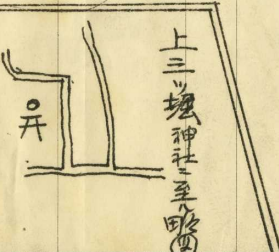 上三ツ堀神社ニ至ル略図